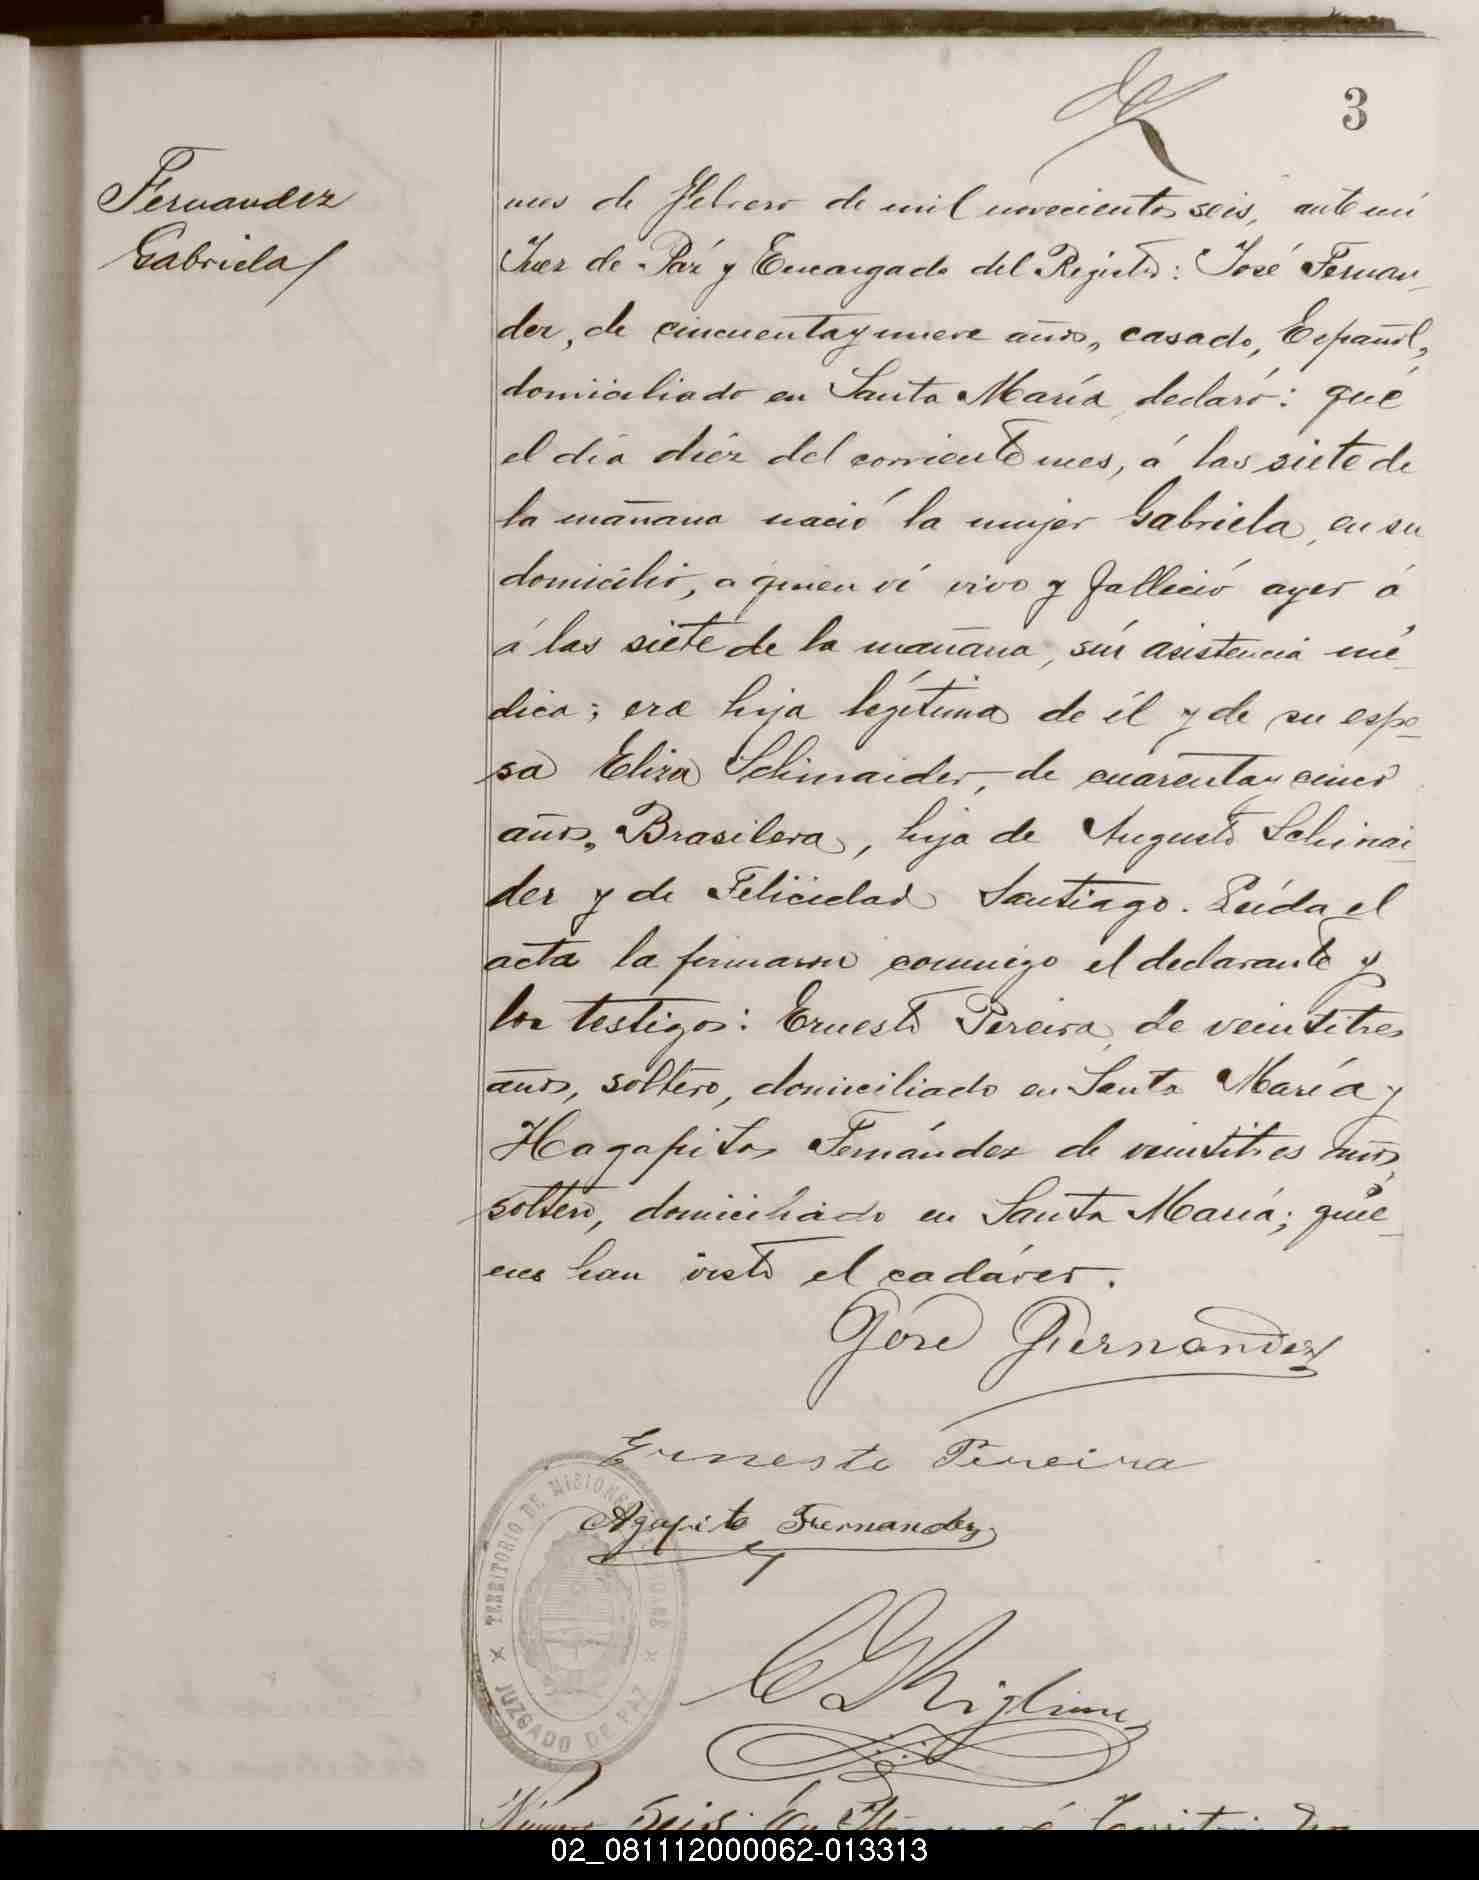 3
Fernandez
Gabriela
mes de Febrero de mil novecientos seis, ante mi
Juez de Páz y Encargado del Registro: José Fernan-
dez, de cincuenta y nueve años, casado, Español,
domiciliado en Santa María, declaró: qué
el día diéz del corriente mes, á las siete de
la mañana nació la mujer Gabriela, en su
domicilio, a quien ví vivo y falleció ayer á
á las siete de la mañana, sín asistencia mé-
dica; era hija legítima de él y de su espo-
sa Eliza Schinaider, de cuarenta y cinco
años, Brasilera, hija de Augusto Schinai-
der y de Felicidad Santiago. Leída el
acta la firmaron conmigo el declarante y
los testigos: Ernesto Pereira, de veintitres
años, soltero, domiciliado en Santa María y
Hagapito Fernández de veintitres años,
soltero, domiciliado en Santa María; quié-
enes han visto el cadáver.
José Fernandez
Ernesto Pereira
Agapito Fernandez
TERRITORIO DE MISIONES
JUZGADO DE PAZ
Número Seis: En Territorio
02_081112000062-013313